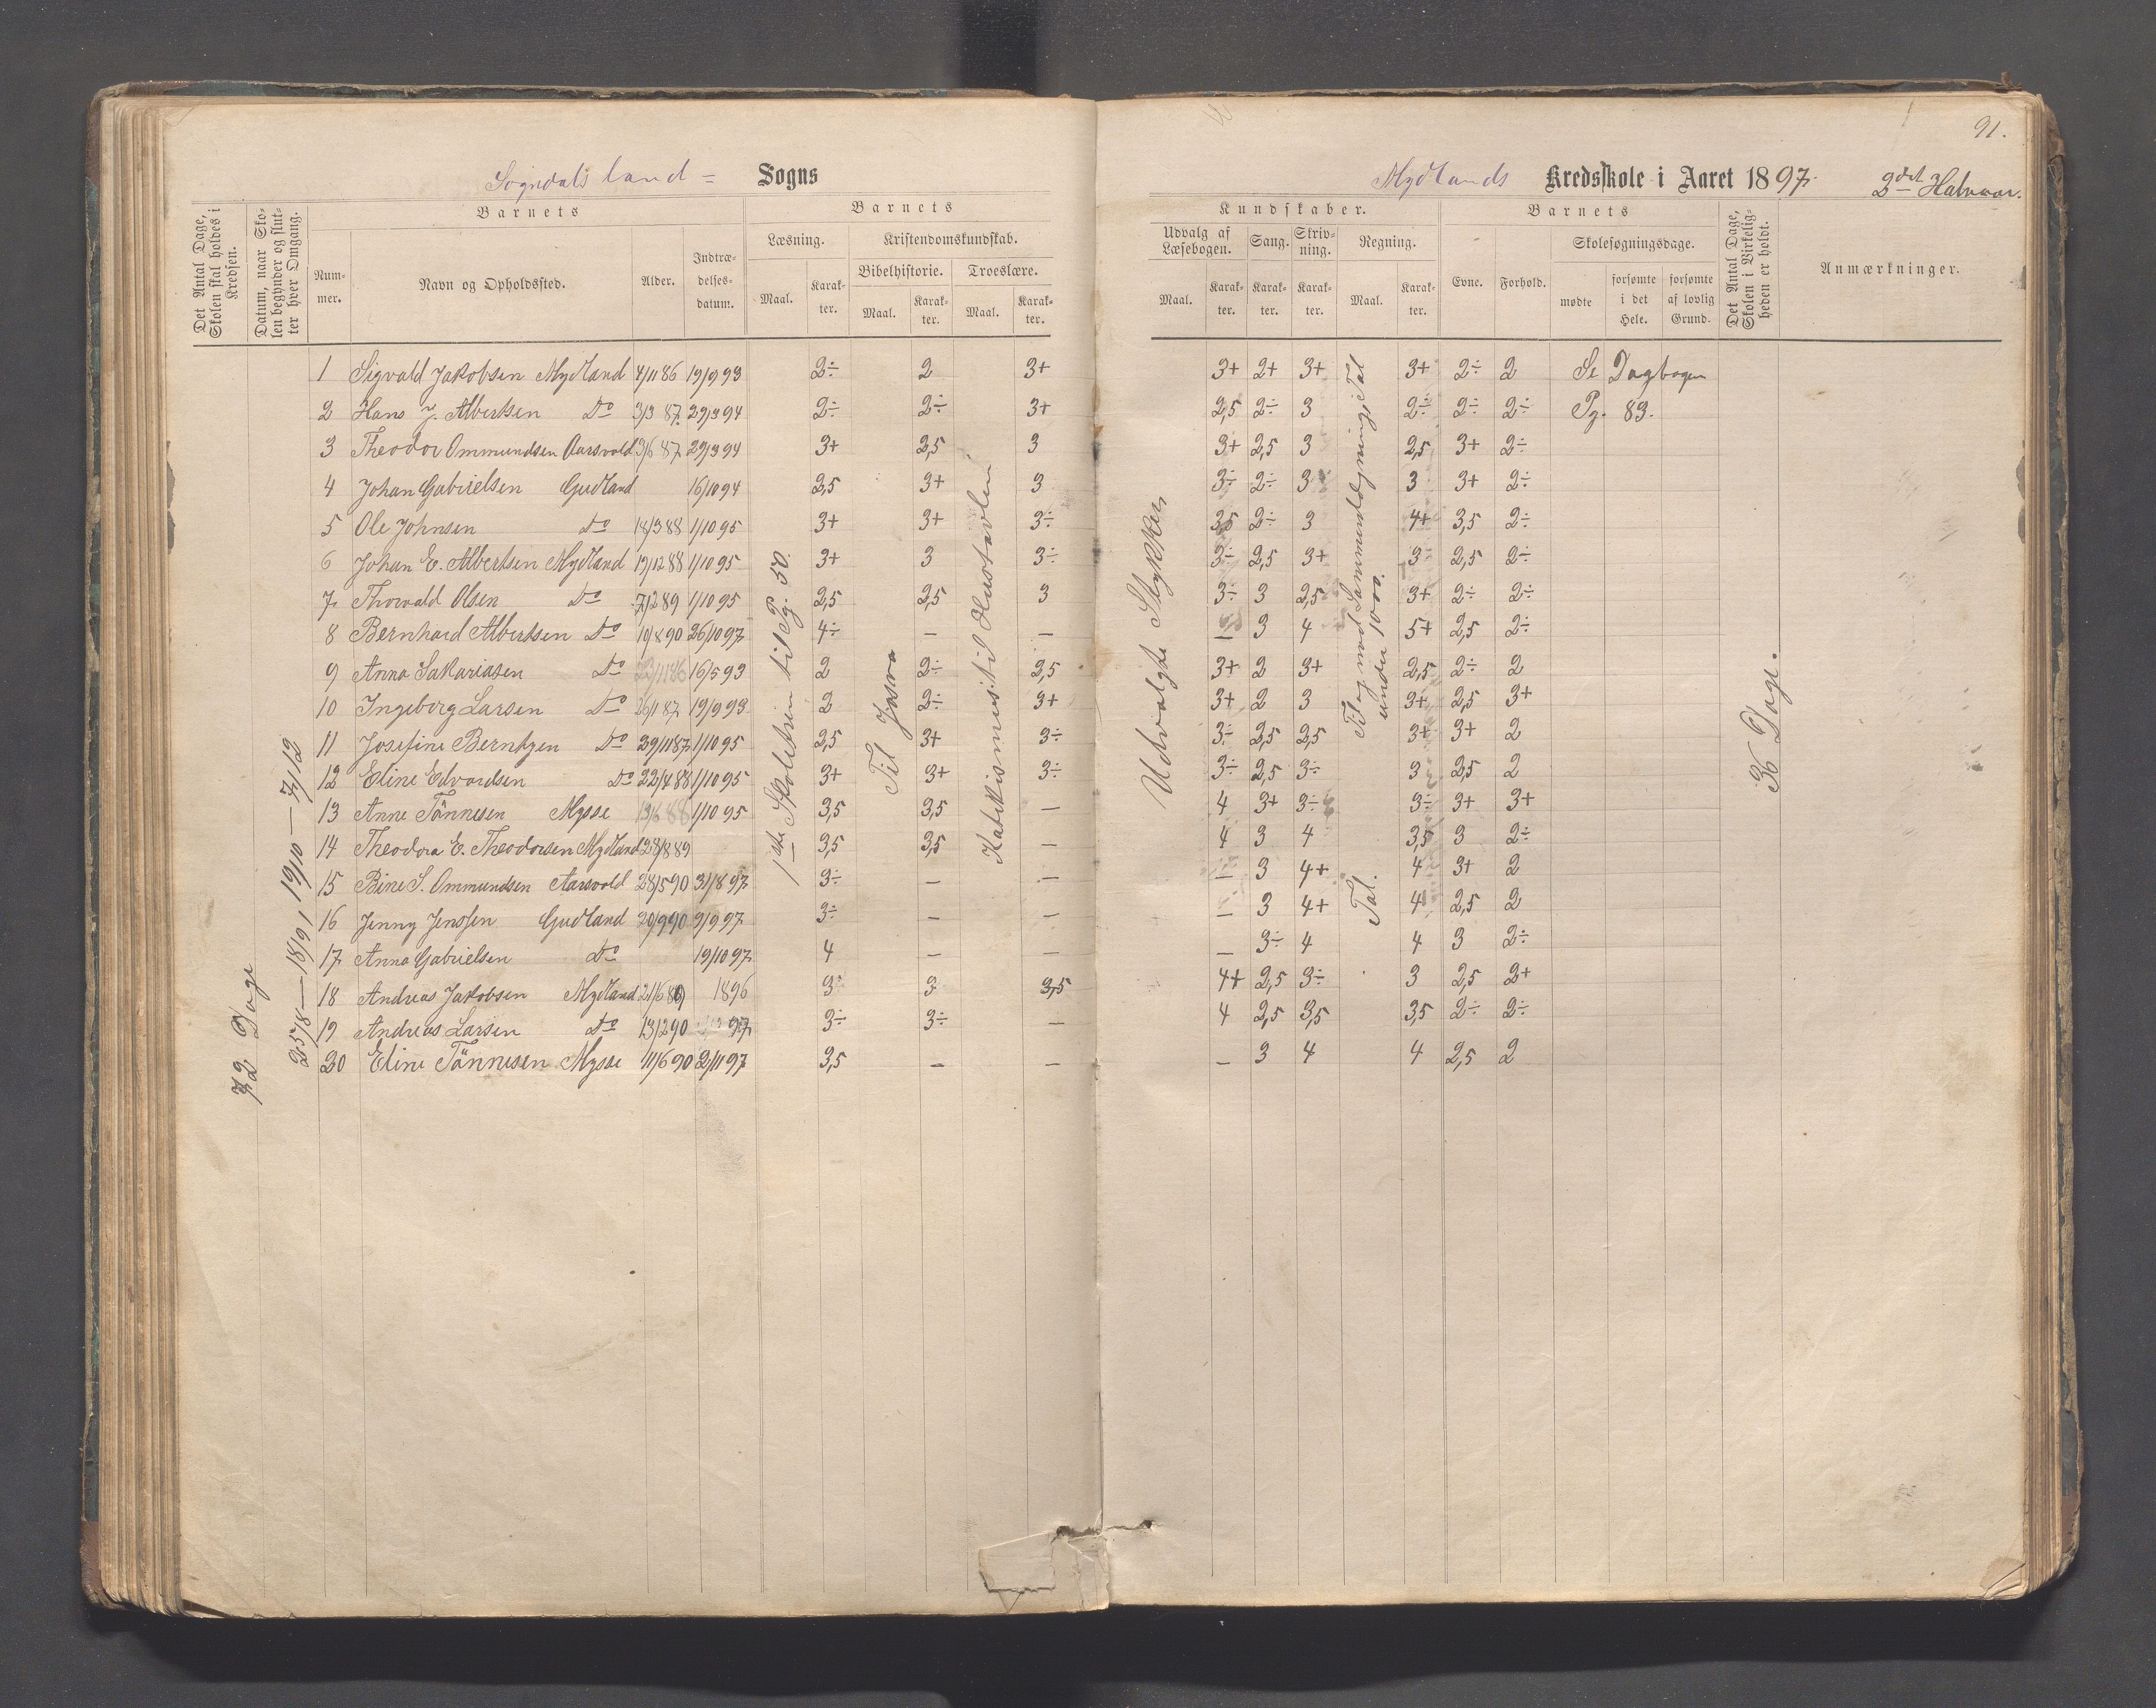 91.
Sogndals land = Sogns
Mydlands Kredsskole i Aaret 1897. 2det Halvaar.
Det Antal Dage, Skolen skal holdes i Kredsen.
Datum, naar Skolen begynder og slutter hver Omgang.
Barnets
Barnets
Nummer.
Navn og Opholdssted.
Alder.
Indtrædelses-datum.
Læsning.
Kristendomskundskab.
Bibelhistorie.
Troeslære.
Maal.
Karakter.
Maal.
Karakter.
Maal.
Karakter.
Kundskaber.
Barnets
Udvalg af Læsebogen.
Sang.
Skrivning.
Regning.
Maal.
Karakter.
Karakter.
Karakter.
Maal.
Karakter.
Evne.
Forhold.
Skolesøgningsdage.
mødte
forsømte i det Hele.
forsømte af lovlig Grund.
Det Antal Dage, Skolen i Virkeligheden er holdt.
Anmærkninger.
72 Dage
25/8 — 18/9 19/10 — 7/12
1ste Skoletrin til Pg. 50.
Til Josva
Katekismus: til Hustavlen
Udvalgte Stykker
under 1000.
Tal.
36 Dage.
1 Sigvald Jakobsen Mydland 4/11 86 19/9 93 2÷ 2 3+ 3+ 2+ 3+ 3+ 2÷ 2 Se Dagbogen
2 Hans J. Albertsen Do 3/3 87. 29/3 94 2÷ 2÷ 3+ 2,5 2÷ 3 2÷ 2÷ 2÷ Pg. 83.
3 Theodor Ommundsen Aarsvold 3/6 87 29/3 94 3+ 2,5 3 3+ 2,5 3 2,5 3+ 2÷
4 Johan Gabrielsen Gudland 16/10 94 2,5 3+ 3 3÷ 2÷ 3 3 3+ 2÷
5 Ole Johnsen do 18/3 88 1/10 95 3+ 3+ 3÷ 3,5 2÷ 3 4+ 3,5 2÷
6 Johan E. Albertsen Mydland 19/12 88 1/10 95 3+ 3 3÷ 3÷ 2,5 3+ 3÷ 2,5 2÷
7 Thorvald Olsen Do 7/2 89 1/10 95 2,5 2,5 3 3÷ 3 2,5 3+ 2÷ 2÷
8 Bernhard Albertsen Do 10/8 90 26/10 97 4÷ — — — 3 4 5+ 2,5 2÷
9 Anna Sakariasen Do 16/5 93 2 2÷ 2,5 3+ 2 3+ 2,5 2÷ 2
10 Ingeborg Larsen Do 26/1 87 19/9 93 2 2÷ 3+ 3+ 2 3 3+ 2,5 3+
11 Josefine Berntzen Do 29/11 87 1/10 95 2,5 3+ 3÷ 3÷ 2,5 2,5 3+ 3+ 2
12 Eline Edvardsen Do 22/4 88 1/10 95 3+ 3+ 3÷ 3÷ 2,5 3÷ 3 2,5 2
13 Anne Tönnesen Mysse 13/6 88 1/10 95 3,5 3,5 — 4 3+ 3÷ 3÷ 3+ 3+
14 Theodora E. Theodorsen Mydland 28/8 89 3,5 3,5 — 4 3 4 3,5 3 2÷
15 Bine S. Ommundsen Aarsvold 28/5 90 31/8 97 3÷ — — — 3 4+ 4 3+ 2
16 Jenny Jenssen Gudland 20/9 90 9/9 97 3÷ — — — 3 4+ 4 2,5 2
17 Anna Gabrielsen Do 19/10 97 4 — — — 3÷ 4 4 3 2÷
18 Andreas Jakobsen Mydland 21/6 89 1896 3 3 3,5 4+ 2,5 3÷ 3 2,5 2+
19 Andreas Larsen Do 13/2 90 97 3÷ 3÷ — 4 2,5 3,5 3,5 2÷ 2÷
20 Eline Tönnesen Mysse 11/6 90 2/11 97 3,5 — — — 3 4 4 2,5 2